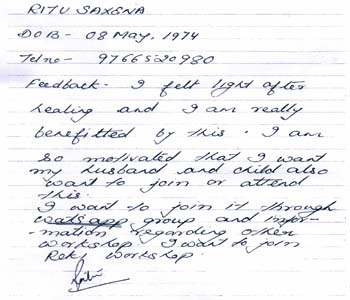 RITU SAXENA
DOB- 08 May, 1974
Tel no- 9766520980
Feedback - I felt light after
healing and I am really
benefitted by this. I am
so motivated that I want
my husband and child also
want to join or attend
this.
I want to join it through
watsapp group and infor-
-mation regarding other
workshop. I want to join
Reki workshop.
Ritu